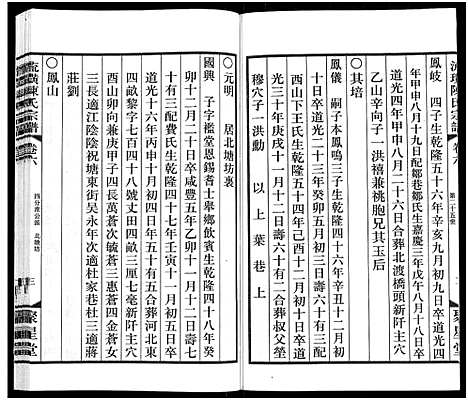 流璜陳氏宗譜 卷六 第二十五世
鳳岐 四子生乾隆五十六年辛亥九月初九日卒道光四
年甲申八月十九日配鄒巷鄒氏生嘉慶三年戊午八月十八日卒
道光四年甲申八月二十六日合葬北渡橋頭新阡主穴
乙山辛向子一洪禧兼祧胞兄其玉後
○其培
鳳儀 嗣子本鳳鳴三子生乾隆四十六年辛丑十二月初
二日卒道光二十三年癸卯五月初三日壽六十有三配
西山下王氏生乾隆五十二年
初十日卒道光二十八年戊申十月二十二日合葬叔父塋
穆穴子一洪勳 以上葉巷上
○元明 居北塘坊裏
國興 子字檻堂恩錫耆士舉鄉飲賓生乾隆四十八年癸
卯十二月二十日卒咸豐五年乙卯十一月十二日壽七
十有三配費氏生乾隆四十七年壬寅十一月初五日卒
道光十六年丙申十一月初四日年五十有五合葬河北東
四畝黎字七百四十八號北四畝三厘七毫新阡主穴
酉山卯向兼庚甲子四長萬蒼次毓蒼三惠蒼四金蒼女
三長適江陰陰祝塘東街吳永年次適杜家巷杜三適蔣
莊劉
○鳳山
流璜陳氏宗譜 卷六 四分淮公派 北塘坊 三 聚星堂